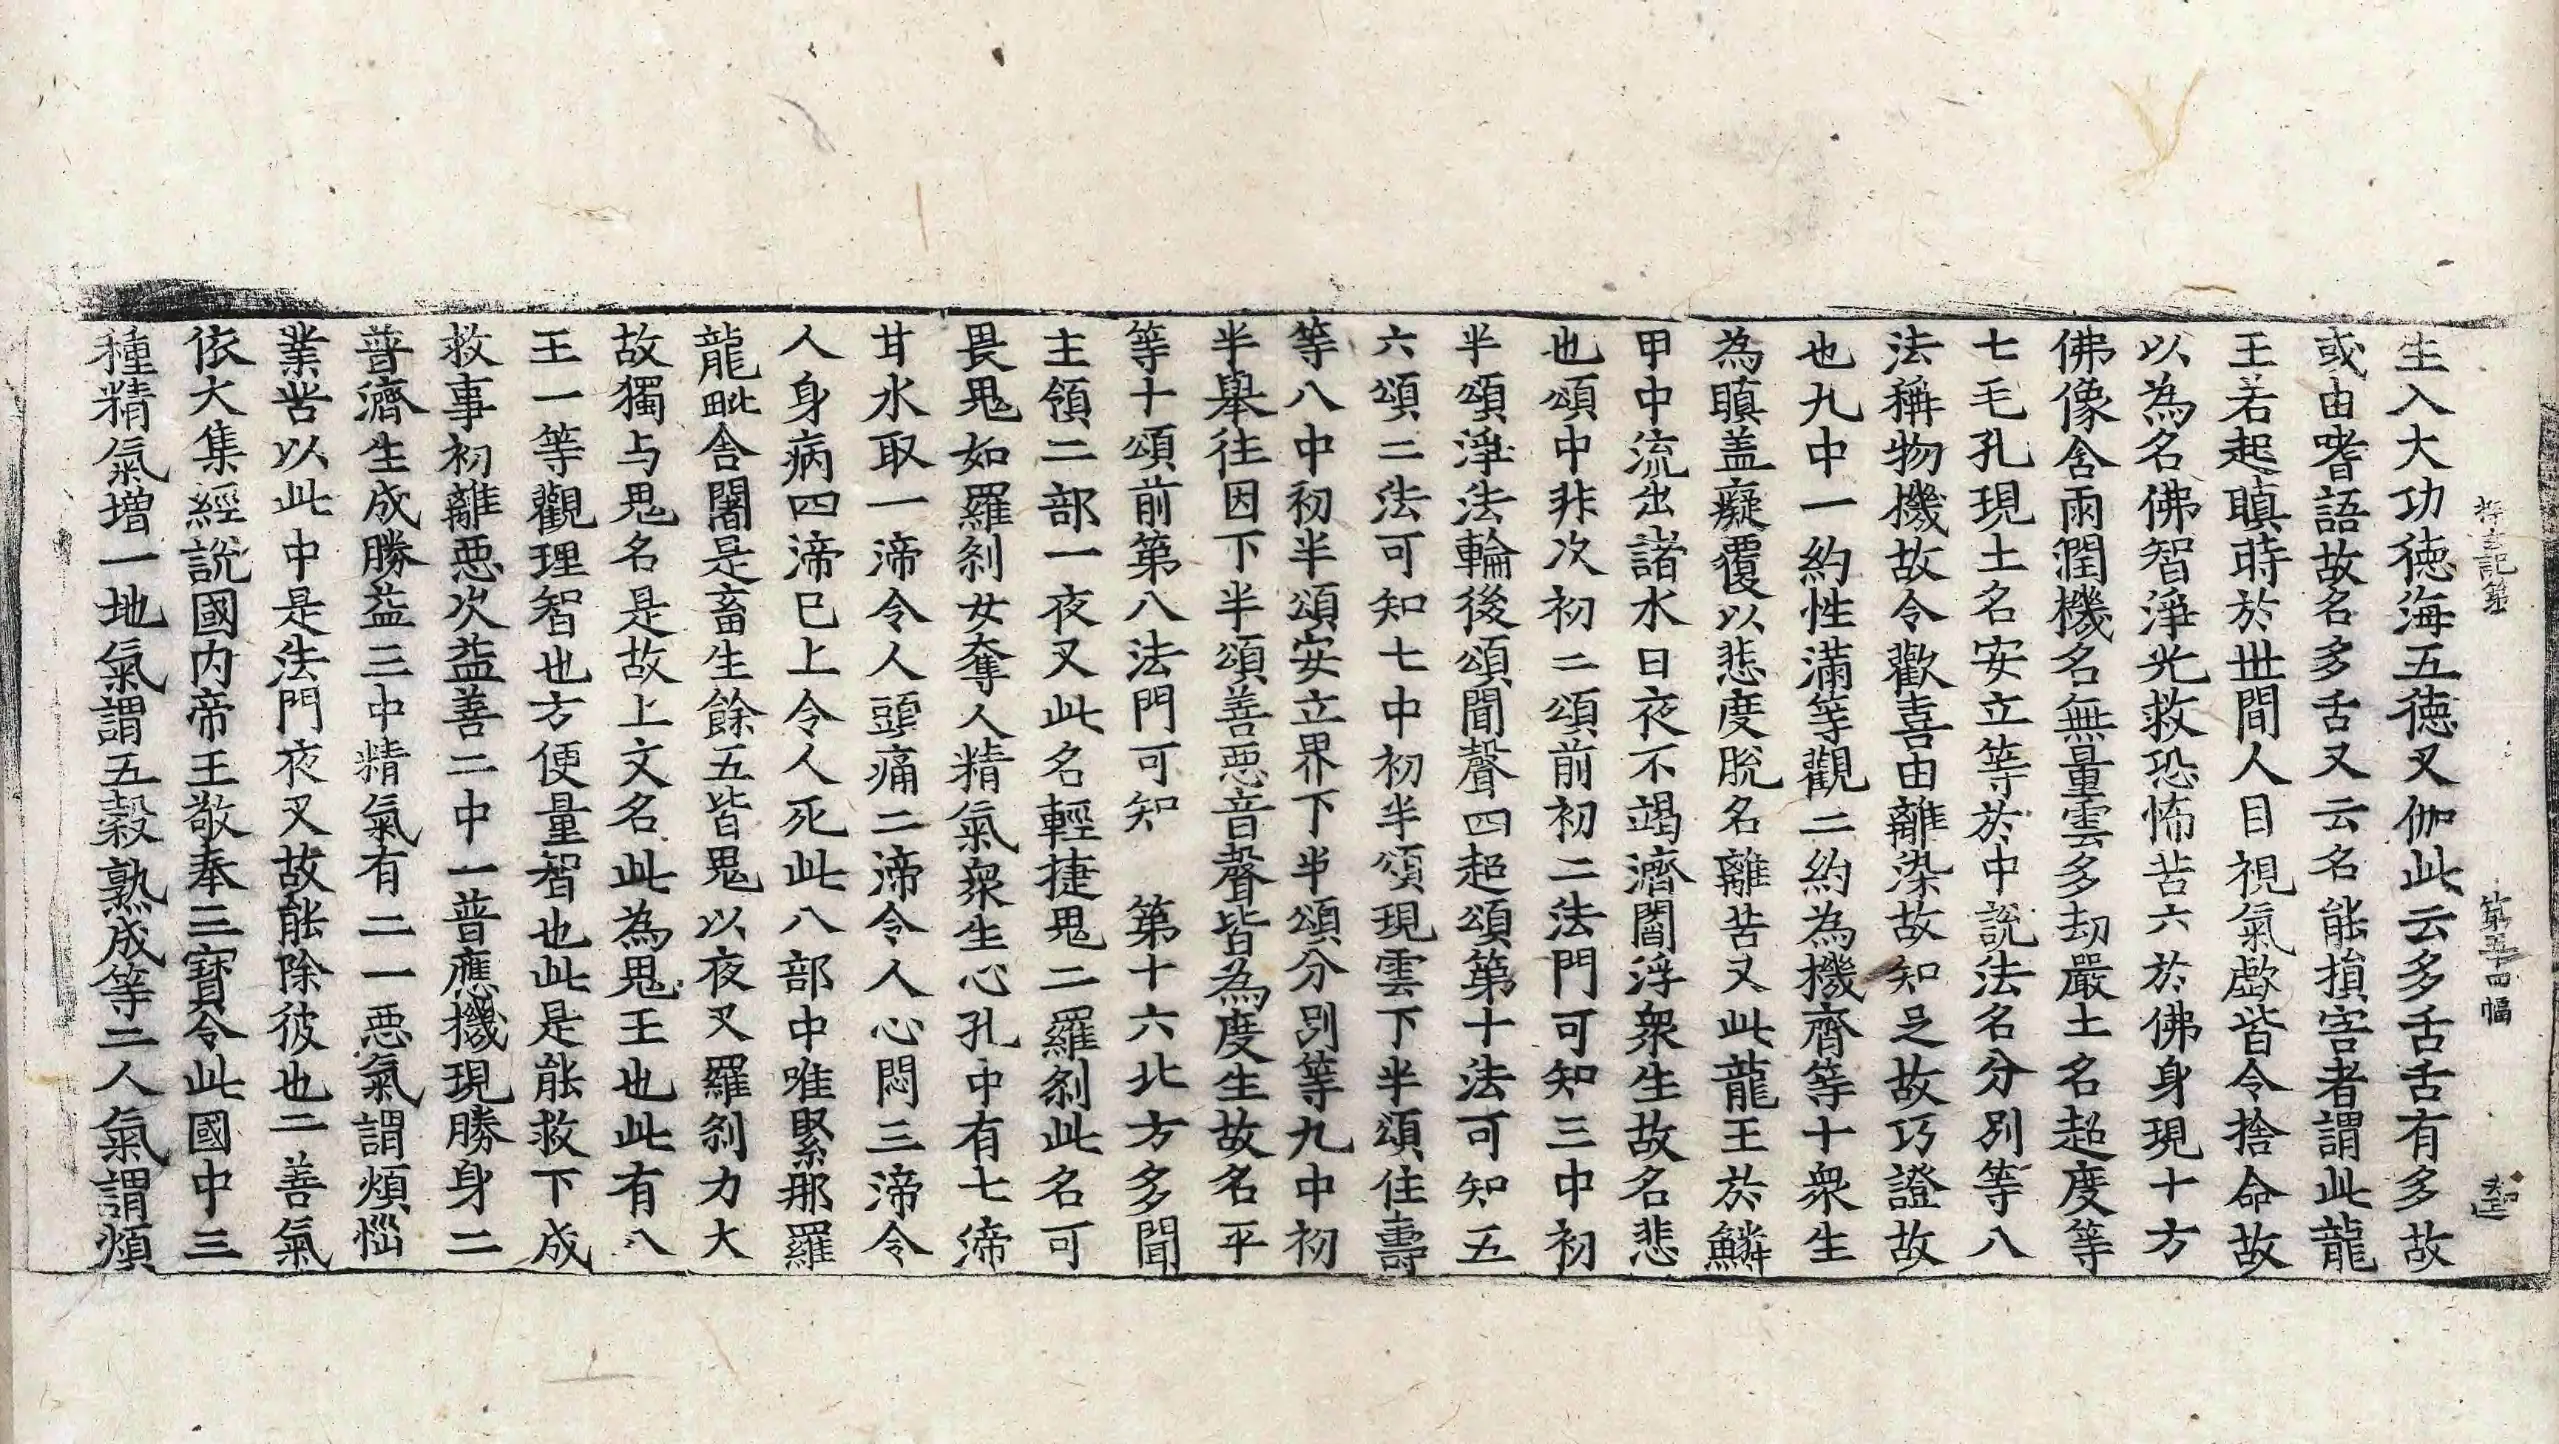 生入大功德海五德叉伽此云多舌舌有多故
或由嗜語故名多舌又云名能損害者謂此龍
王若起瞋時於世間人目視氣歔皆令捨命故
以為名佛智淨光救恐怖苦六於佛身現十方
佛像含雨潤機名無量雲多劫嚴土名超度等
七毛孔現土名安立等於中說法名分別等八
法稱物機故令歡喜由離染故知足故巧證故
也九中一約性滿等觀二約為機齊等十衆生
為瞋盖癡覆以悲度脫名離苦又此龍王於鱗
甲中流出諸水日夜不竭濟閻浮衆生故名悲
也頌中非次初二頌前初二法門可知三中初
半頌淨法輪後頌聞聲四超頌第十法可知五
六頌二法可知七中初半頌現雲下半頌住壽
等八中初半頌安立界下半頌分別等九中初
半舉往因下半頌善惡音聲皆為度生故名平
等十頌前第八法門可知　第十六北方多聞
主領二部一夜叉此名輕捷鬼二羅刹此名可
畏鬼如羅刹女奪人精氣衆生心孔中有七渧
甘水取一渧令人頭痛二渧令人心悶三渧令
人身病四渧巳上令人死此八部中唯緊那羅
龍毗舍闍是畜生餘五皆鬼以夜叉羅刹力大
故獨与鬼名是故上文名此為鬼王也此有八
王一等觀理智也方便量智也此是能救下成
救事初離惡次益善二中一普應機現勝身二
普濟生成勝益三中精氣有二一惡氣謂煩惱
業苦以此中是法門夜叉故能除彼也二善氣
依大集經說國内帝王敬奉三寶令此國中三
種精氣增一地氣謂五穀熟成等二人氣謂煩